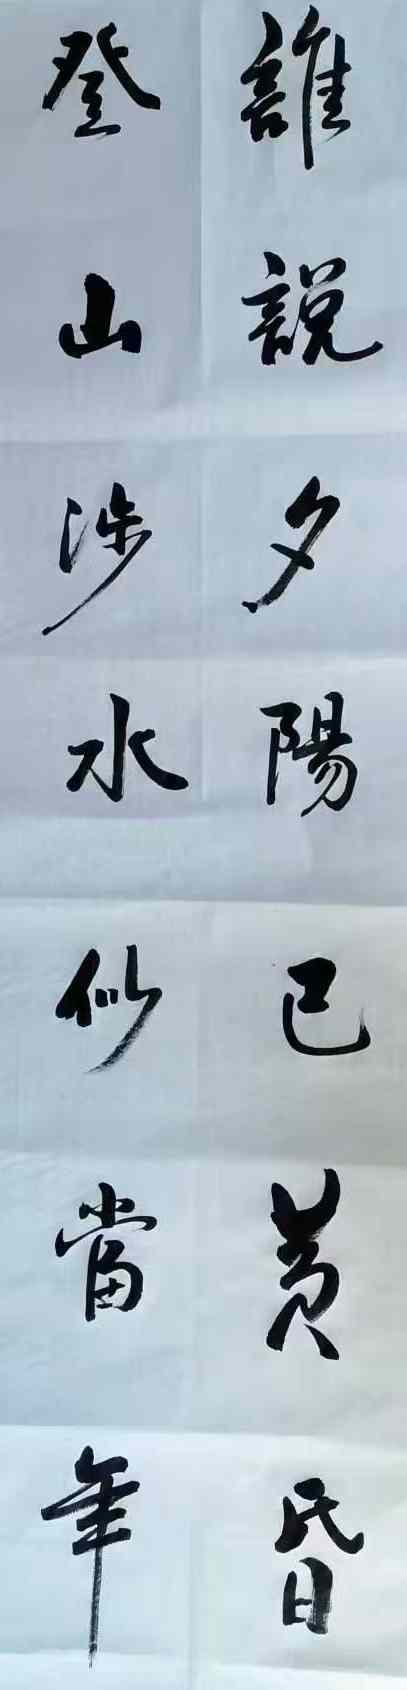 誰說夕陽已黃昏
登山涉水似當年